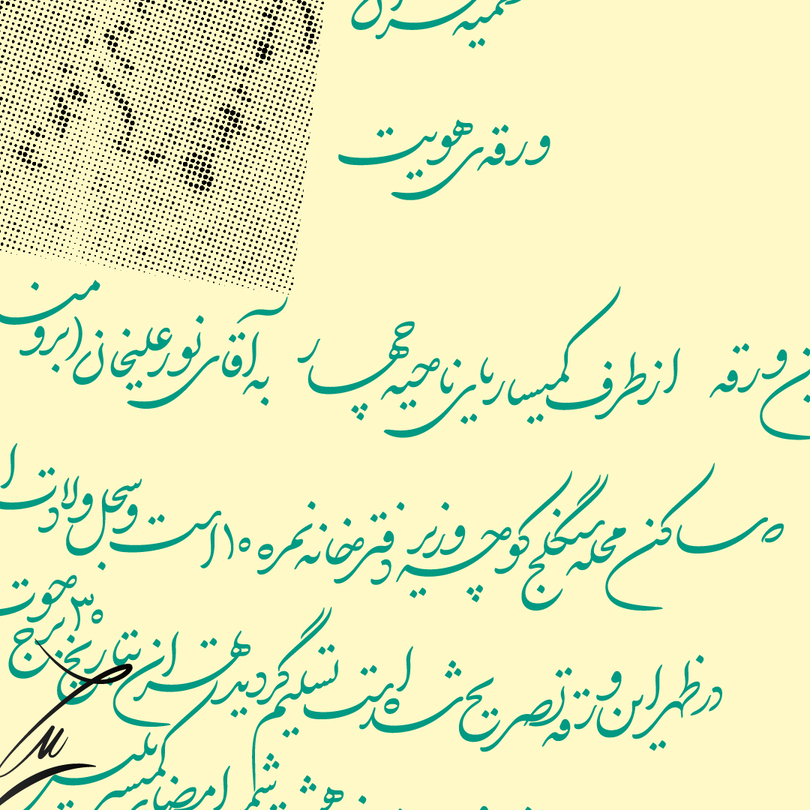 ورقه‌ی هویت
ورقه از طرف کمیساریای ناحیه چهار به آقای نورعلیخان (برومند
ه ساکن محله سنگلج کوچه وزیر دفترخانه نمره ۱۰ است و سجل ولادت
در ظهر این ورقه تصریح شده است تسلیم گردید طهران بتاریخ ۳۰ برج حوت
امضای کمیسر